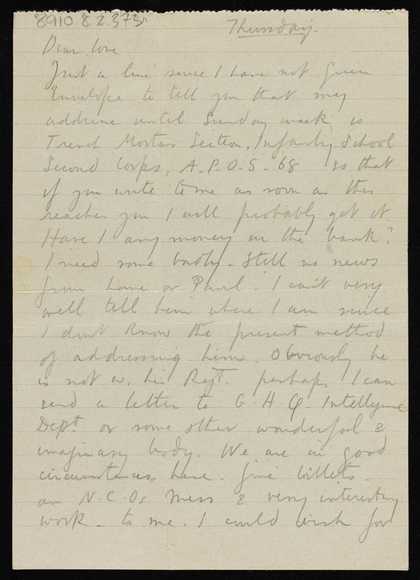 8910 8 2373
Thursday.
Dear Love
Just a line since I have not given
Envelope to tell you that my
address until Sunday week is
Trench Mortar Section, Infantry School
Second Corps, A.P.O.S-68 so that
if you write to me as soon as this
reaches you I will probably get it
Have I any money in the bank?
I need some badly - Still no news
from home or Paul. I can't very
well tell him where I am since
I don't know the present method
of addressing him. Obviously he
is not w. his Regt. perhaps I can
send a letter to G.H.Q. Intelligence
Dept. or some other wonderful &
imaginary body. We are in good
circumstances here. fine billets.
an N.C.Os Mess & very interesting
work - to me. I could wish for